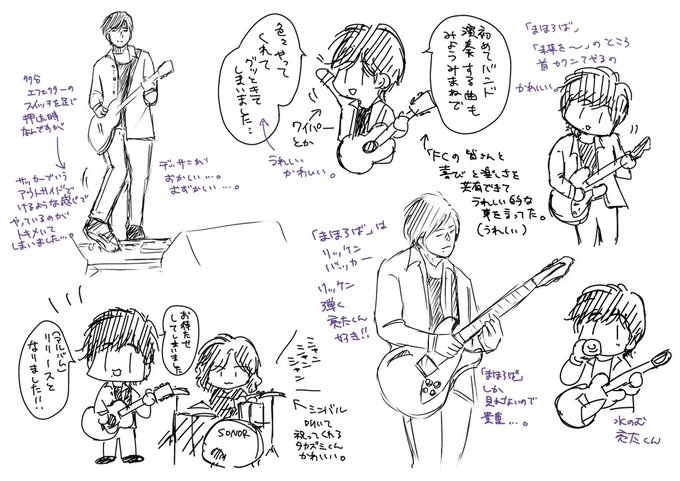 多分
エフェクターの
スイッチを足で
押す時
なんですが
サッカーでいう
アウトサイドで
けるような感じで
やっているのが
トキメいて
しまいました…。
デッサンが
おかしい…。
むずかしい…。
初めてバンド
演奏する曲も
みようみまねで
色々やって
くれて
グッときて
しまいました…
うれしい
かわいい。
ワイパー
とか
「FCの皆さんと
喜びと楽しさを
共有できて
うれしい的な
事を言ってた。
(うれしい)
「まほろば」
「未来を〜」のところ
首カクンてやるの
かわいい。
「まほろば」は
リッケン
バッカー
リッケン
弾く
亮たくん
好き!!
「まほろば」
しか
見れないので
貴重…。
水のむ
亮たくん
お待たせ
してしまいました
(アルバム)
リリースと
なりました!!
ジャン
ジャン
ジャン
シンバル
叩いて
祝ってくれる
タカズミくん
かわいい。
SONOR